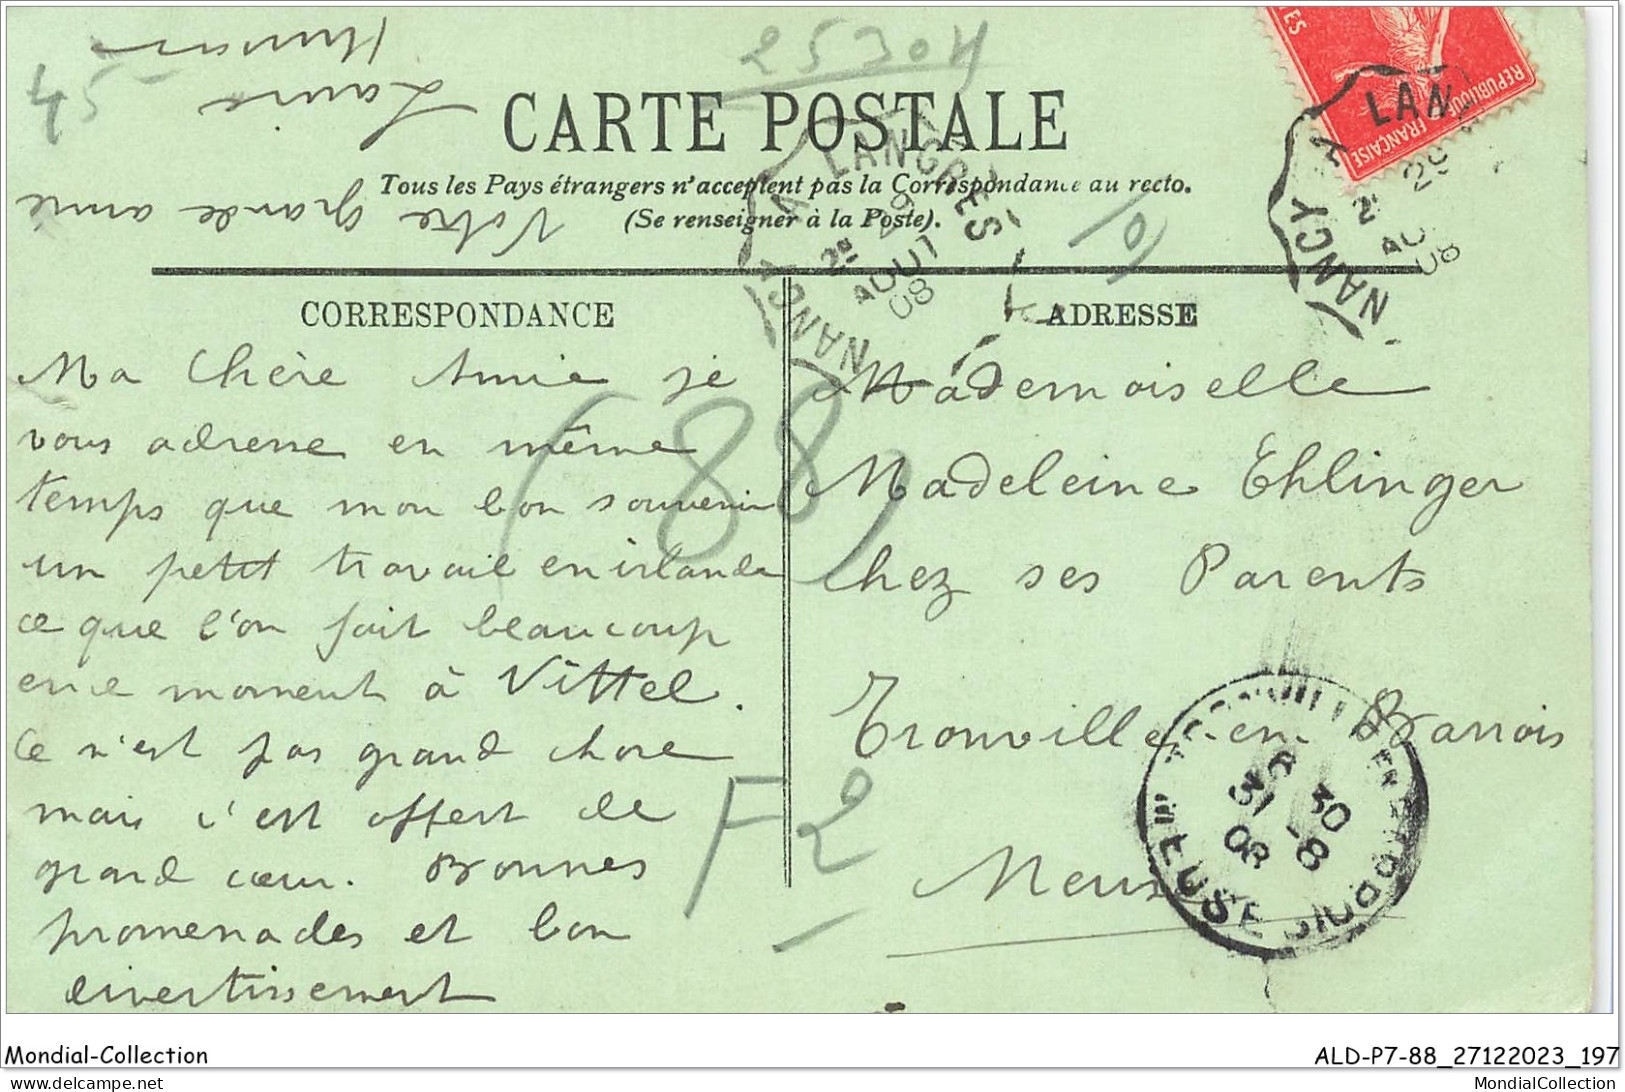 25304
45
CARTE POSTALE
Tous les Pays étrangers n'acceptent pas la Correspondance au recto.
(Se renseigner à la Poste).
REPUBLIQUE FRANÇAISE
LANGRES A NANCY
2º
29
AOUT
08
LAN
NANCY A
2º
29
AOU
08
CORRESPONDANCE
Ma Chère Amie je
vous adresse en même
temps que mon bon souvenir
un petit travail en irlande
ce que l'on fait beaucoup
en ce moment à Vittel.
Ce n'est pas grand chose
mais c'est offert de
grand cœur. Bonnes
promenades et bon
divertissement
Votre grande amie
Laure
(88)
F2
ADRESSE
Mademoiselle
Madeleine Ehlinger
chez ses Parents
Tronville-en-Barrois
Meuse
MEUSE
30
31 -8
08
Mondial-Collection
ALD-P7-88_27122023_197
https://www.delcampe.net
MondialCollection